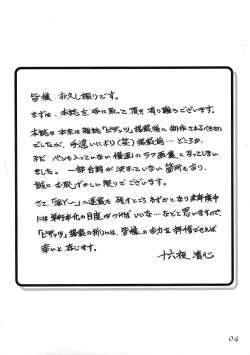 皆様 お久し振りです。
まずは、本誌を手に取って頂き有り難うございます。
本誌は本来は雑誌「ビザッツ」掲載後に制作されるべきもの
でしたが、手違いにより(笑)掲載前…どころか、
まだペンも入っていない漫画のラフ画集となってしまい
ました。一部台詞が決まっていない箇所もあり、
誠にお恥ずかしい限りでございます。
さて、「」の連載も残すところわずかとなり来年度中
には単行本化の目処がつけばいいな…などと思いますので、
「ビザッツ」掲載の折りには、皆様のお力を拝借できれば
幸いと存じます。
十六夜 清心
04